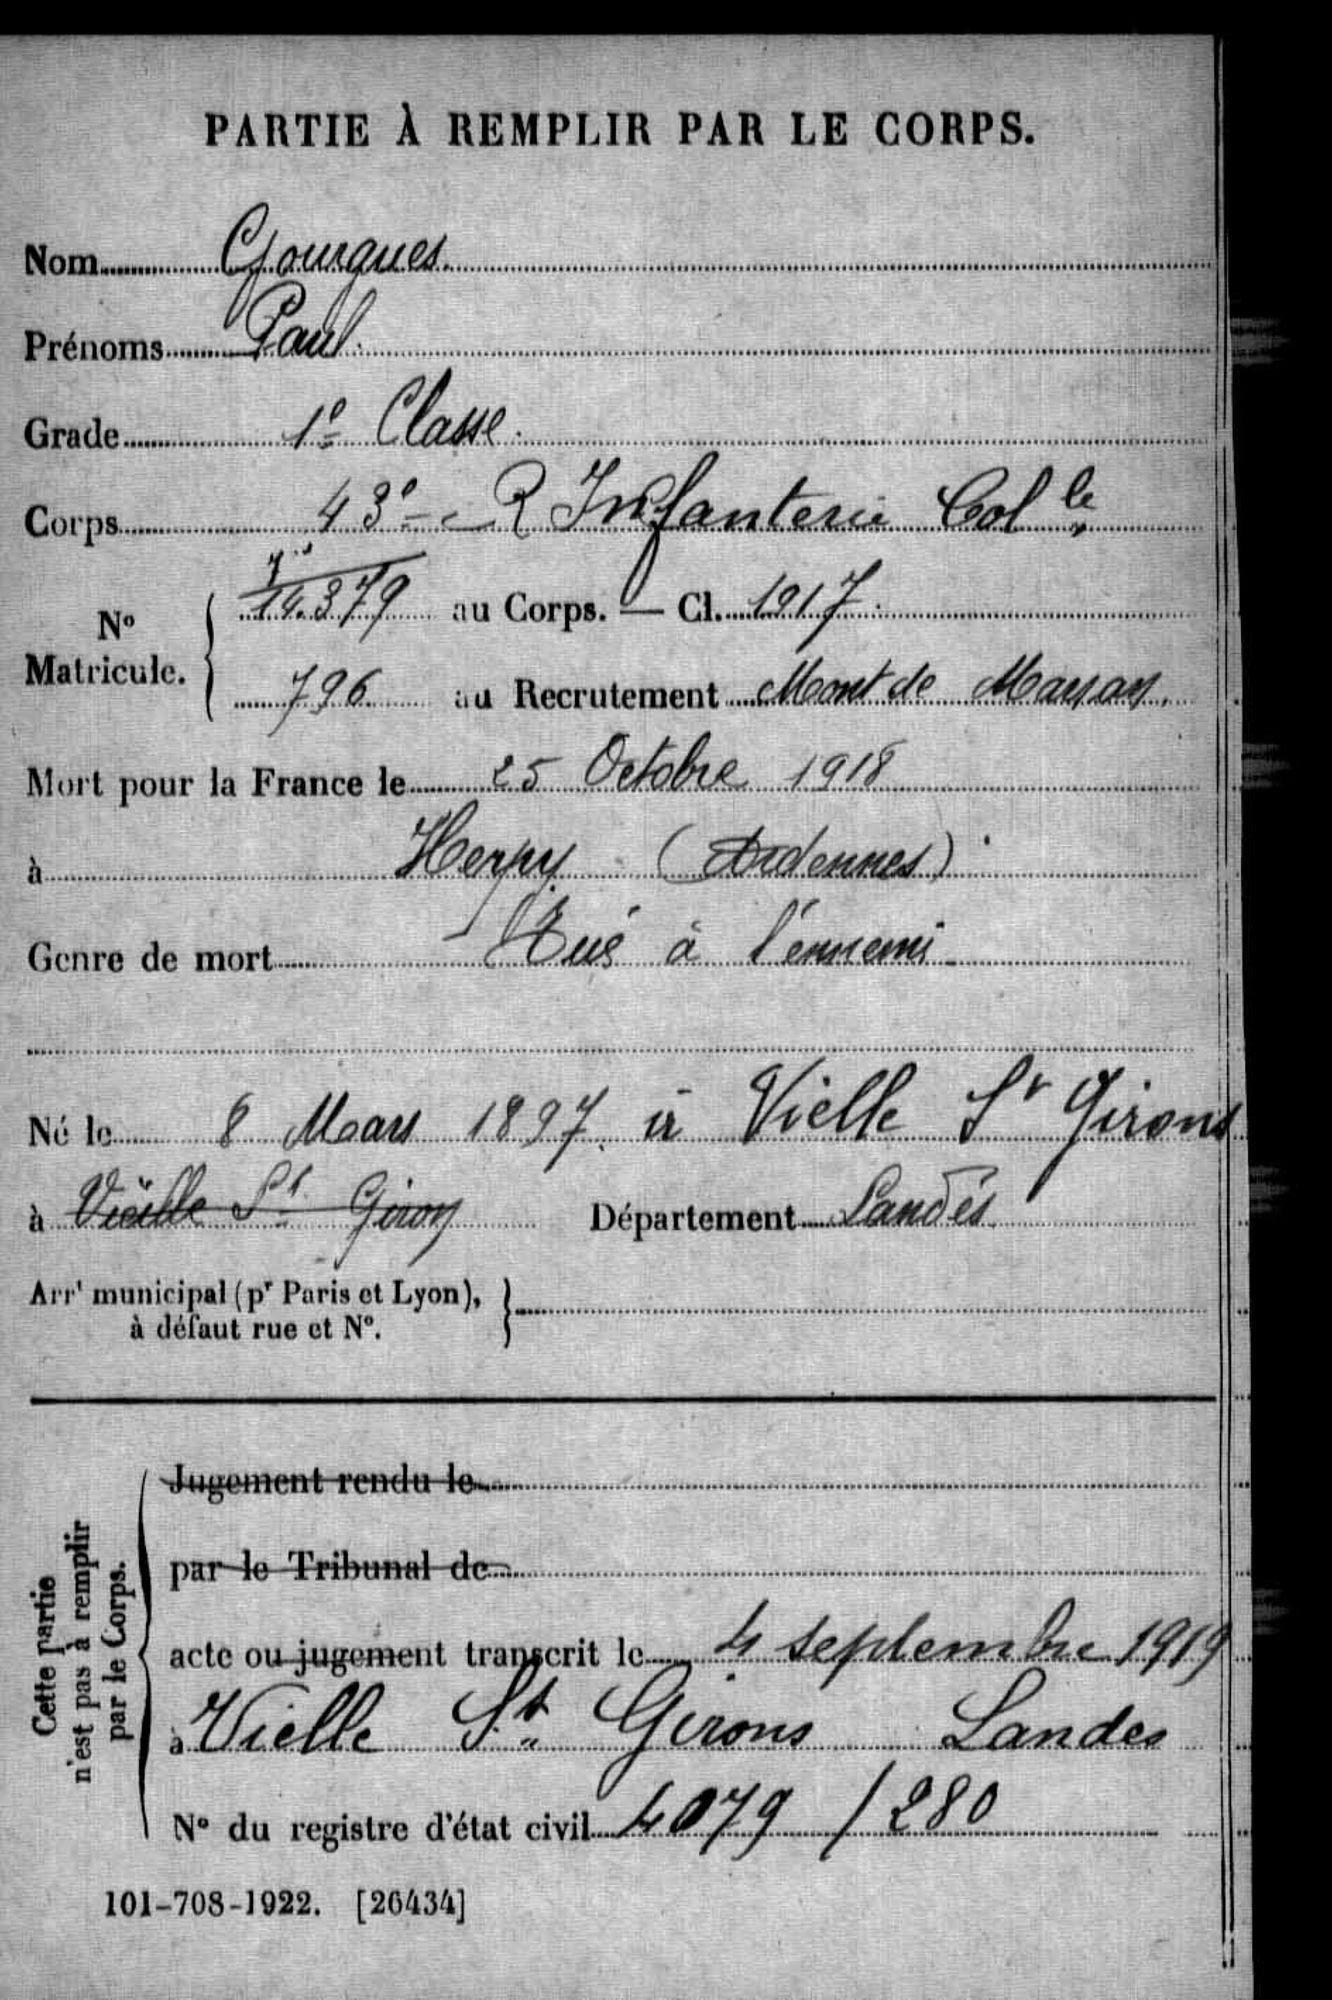 PARTIE À REMPLIR PAR LE CORPS.
Nom Gourgues
Prénoms Paul
Grade 1e Classe
Corps 43e R Infanterie Colle
14.379 au Corps. — Cl. 1917
No Matricule.
796 au Recrutement Mont de Marsan
Mort pour la France le 25 Octobre 1918
à Herpy (Ardennes)
Genre de mort Tué à l'ennemi
Né le 8 Mars 1897 à Vielle St Girons
à Vieille St Giron Département Landes
Arrt municipal (pr Paris et Lyon),
à défaut rue et No.
Cette partie
n'est pas à remplir
par le Corps.
Jugement rendu le
par le Tribunal de
acte ou jugement transcrit le 4 septembre 1919
à Vielle St Girons Landes
No du registre d'état civil 4079 / 280
101-708-1922. [26434]